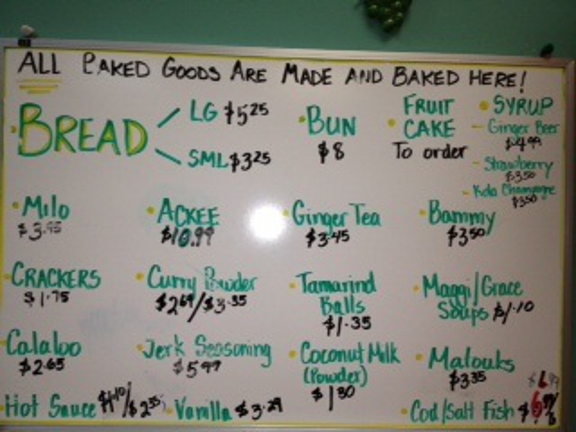 ALL BAKED GOODS ARE MADE AND BAKED HERE!
BREAD
LG $5.25
SML $3.25
BUN
$8
FRUIT
CAKE
To order
SYRUP
Ginger Beer
$4.99
Strawberry
$3.50
Kola Champagne
$3.50
Milo
ACKEE
$10.99
Ginger Tea
$3.45
Bammy
$3.50
CRACKERS
$1.75
Curry Powder
$2.69/$3.35
Tamarind
Balls
$1.35
Maggi/Grace
Soups $1.10
Calaloo
$2.65
Jerk Seasoning
$5.99
Coconut Milk
(Powder)
$1.30
Matouks
$3.35
Hot Sauce
Vanilla $3.29
Cod/Salt Fish